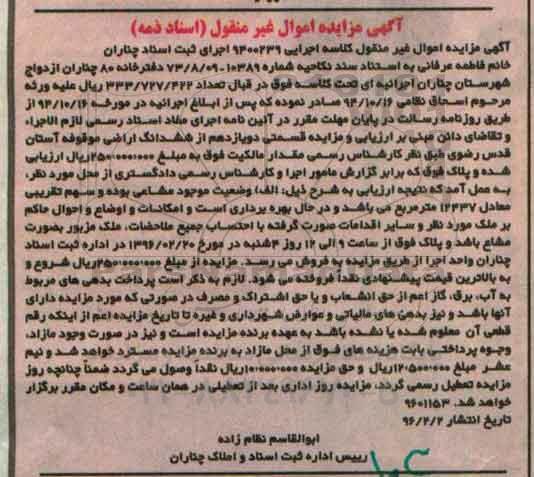 آگهی مزایده اموال غیر منقول (اسناد ذمه)
آگهی مزایده اموال غیر منقول کلاسه اجرایی ۹۴۰۰۲۳۹ اجرای ثبت اسناد چناران
خانم فاطمه عرفانی به استناد سند نکاحیه شماره ۱۰۳۸۹-۷۳/۸/۰۹ دفترخانه ۸۰ چناران ازدواج
شهرستان چناران اجرائیه ای تحت کلاسه فوق در قبال تعداد ۳۳۴/۷۲۷/۴۲۲ ریال علیه ورثه
مرحوم اسحاق نظامی ۹۴/۱۰/۱۶ صادر نموده که پس از ابلاغ اجرائیه در مورخه ۹۴/۱۰/۱۶ از
طریق روزنامه رسالت در پایان مهلت مقرر در آئین نامه اجرای مفاد اسناد رسمی لازم الاجراء
و تقاضای دائن مبنی بر ارزیابی و مزایده قسمتی دوپازدهم از ششدانگ اراضی موقوفه آستان
قدس رضوی طبق نظر کارشناس رسمی مقدار مالکیت فوق به مبلغ ۲۵۰۰۰۰۰۰۰ریال ارزیابی
شده و پلاک فوق که برابر گزارش مامور اجرا و کارشناس رسمی دادگستری از محل مورد نظر،
به عمل آمد که نتیجه ارزیابی به شرح ذیل: الف) وضعیت موجود مشاعی بوده و سهم تقریبی
معادل ۱۲۴۳۷ مترمربع می باشد و در حال بهره برداری است و امکانات و اوضاع و احوال حاکم
بر ملک مورد نظر و سایر اقدامات صورت گرفته با احتساب جمیع ملاحضات، ملک مزبور بصورت
مشاع باشد و پلاک فوق از ساعت ۹ الی ۱۲ روز ۴شنبه در مورخ ۱۳۹۶/۰۲/۲۰ در اداره ثبت اسناد
چناران واحد اجرا از طریق مزایده به فروش می رسد. مزایده از مبلغ ۲۵۰۰۰۰۰۰۰ریال شروع و
به بالاترین قیمت پیشنهادی نقداً فروخته می شود. لازم به ذکر است پرداخت بدهی های مربوط
به آب، برق، گاز اعم از حق انشعاب و یا حق اشتراک و مصرف در صورتی که مورد مزایده دارای
آنها باشد و نیز بدهی های مالیاتی و عوارض شهرداری و غیره تا تاریخ مزایده اعم از اینکه رقم
قطعی آن معلوم شده یا نشده باشد به عهده برنده مزایده است و نیز در صورت وجود مازاد،
وجوه پرداختی بابت هزینه های فوق از محل مازاد به برنده مزایده مسترد خواهد شد و نیم
عشر مبلغ ۱۲۵۰۰۰۰۰ریال و حق مزایده ۱۰۰۰۰۰۰۰ریال نقداً وصول می گردد ضمناً چنانچه روز
مزایده تعطیل رسمی گردد، مزایده روز اداری بعد از تعطیلی در همان ساعت و مکان مقرر برگزار
خواهد شد. ۹۶۰۱۱۵۳
تاریخ انتشار ۹۶/۲/۲
ابوالقاسم نظام زاده
رییس اداره ثبت اسناد و املاک چناران